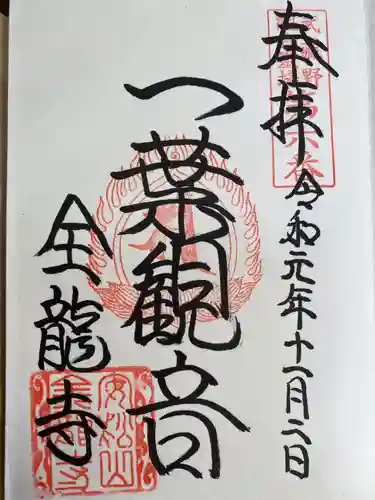 奉拝
令和元年十一月二日
一葉観音
金龍寺